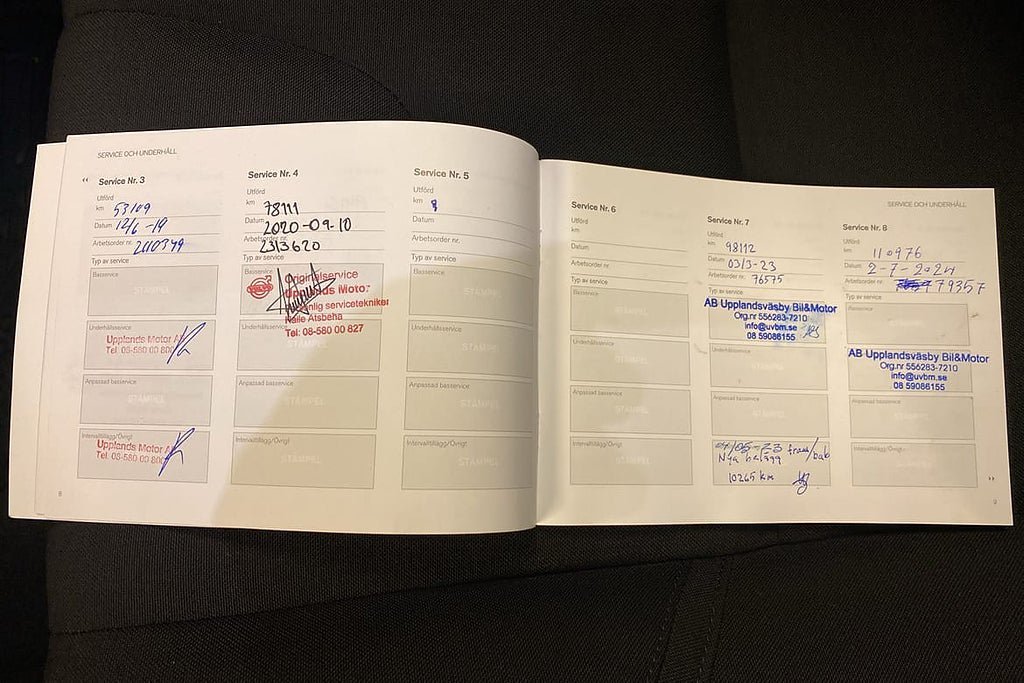 SERVICE OCH UNDERHÅLL
Service Nr. 3
Utförd
km 53109
Datum 12/6-19
Arbetsorder nr. 2110349
Typ av service
Basservice
STÄMPEL
Underhållsservice
Upplands Motor A
Tel: 08-580 00 80
Anpassad basservice
STÄMPEL
Intervalltillägg/Övrigt
Upplands Motor A
Tel: 08-580 00 80
8
Service Nr. 4
Utförd
km 78111
Datum 2020-09-10
Arbetsorder nr. 2313620
Typ av service
Basservice
VOLVO
Originalservice
Upplands Motor
servicetekniker
Kalle Atsbeha
Tel: 08-580 00 827
Underhållsservice
STÄMPEL
Anpassad basservice
STÄMPEL
Intervalltillägg/Övrigt
STÄMPEL
Service Nr. 5
Utförd
km
Datum
Arbetsorder nr.
Typ av service
Basservice
STÄMPEL
Underhållsservice
STÄMPEL
Anpassad basservice
STÄMPEL
Intervalltillägg/Övrigt
STÄMPEL
SERVICE OCH UNDERHÅLL
Service Nr. 6
Utförd
km
Datum
Arbetsorder nr.
Typ av service
Basservice
STÄMPEL
Underhållsservice
STÄMPEL
Anpassad basservice
STÄMPEL
Intervalltillägg/Övrigt
STÄMPEL
Service Nr. 7
Utförd
km 98112
Datum 03/3-23
Arbetsorder nr. 76575
Typ av service
AB Upplandsväsby Bil&Motor
Org.nr 556283-7210
info@uvbm.se
08 59086155
Underhållsservice
STÄMPEL
Anpassad basservice
STÄMPEL
/05-23 fram/bak
Nya belägg
10265 km
Service Nr. 8
Utförd
km 110976
Datum 2-7-2024
Arbetsorder nr. 79357
Typ av service
Basservice
STÄMPEL
AB Upplandsväsby Bil&Motor
Org.nr 556283-7210
info@uvbm.se
08 59086155
Anpassad basservice
STÄMPEL
Intervalltillägg/Övrigt
STÄMPEL
9